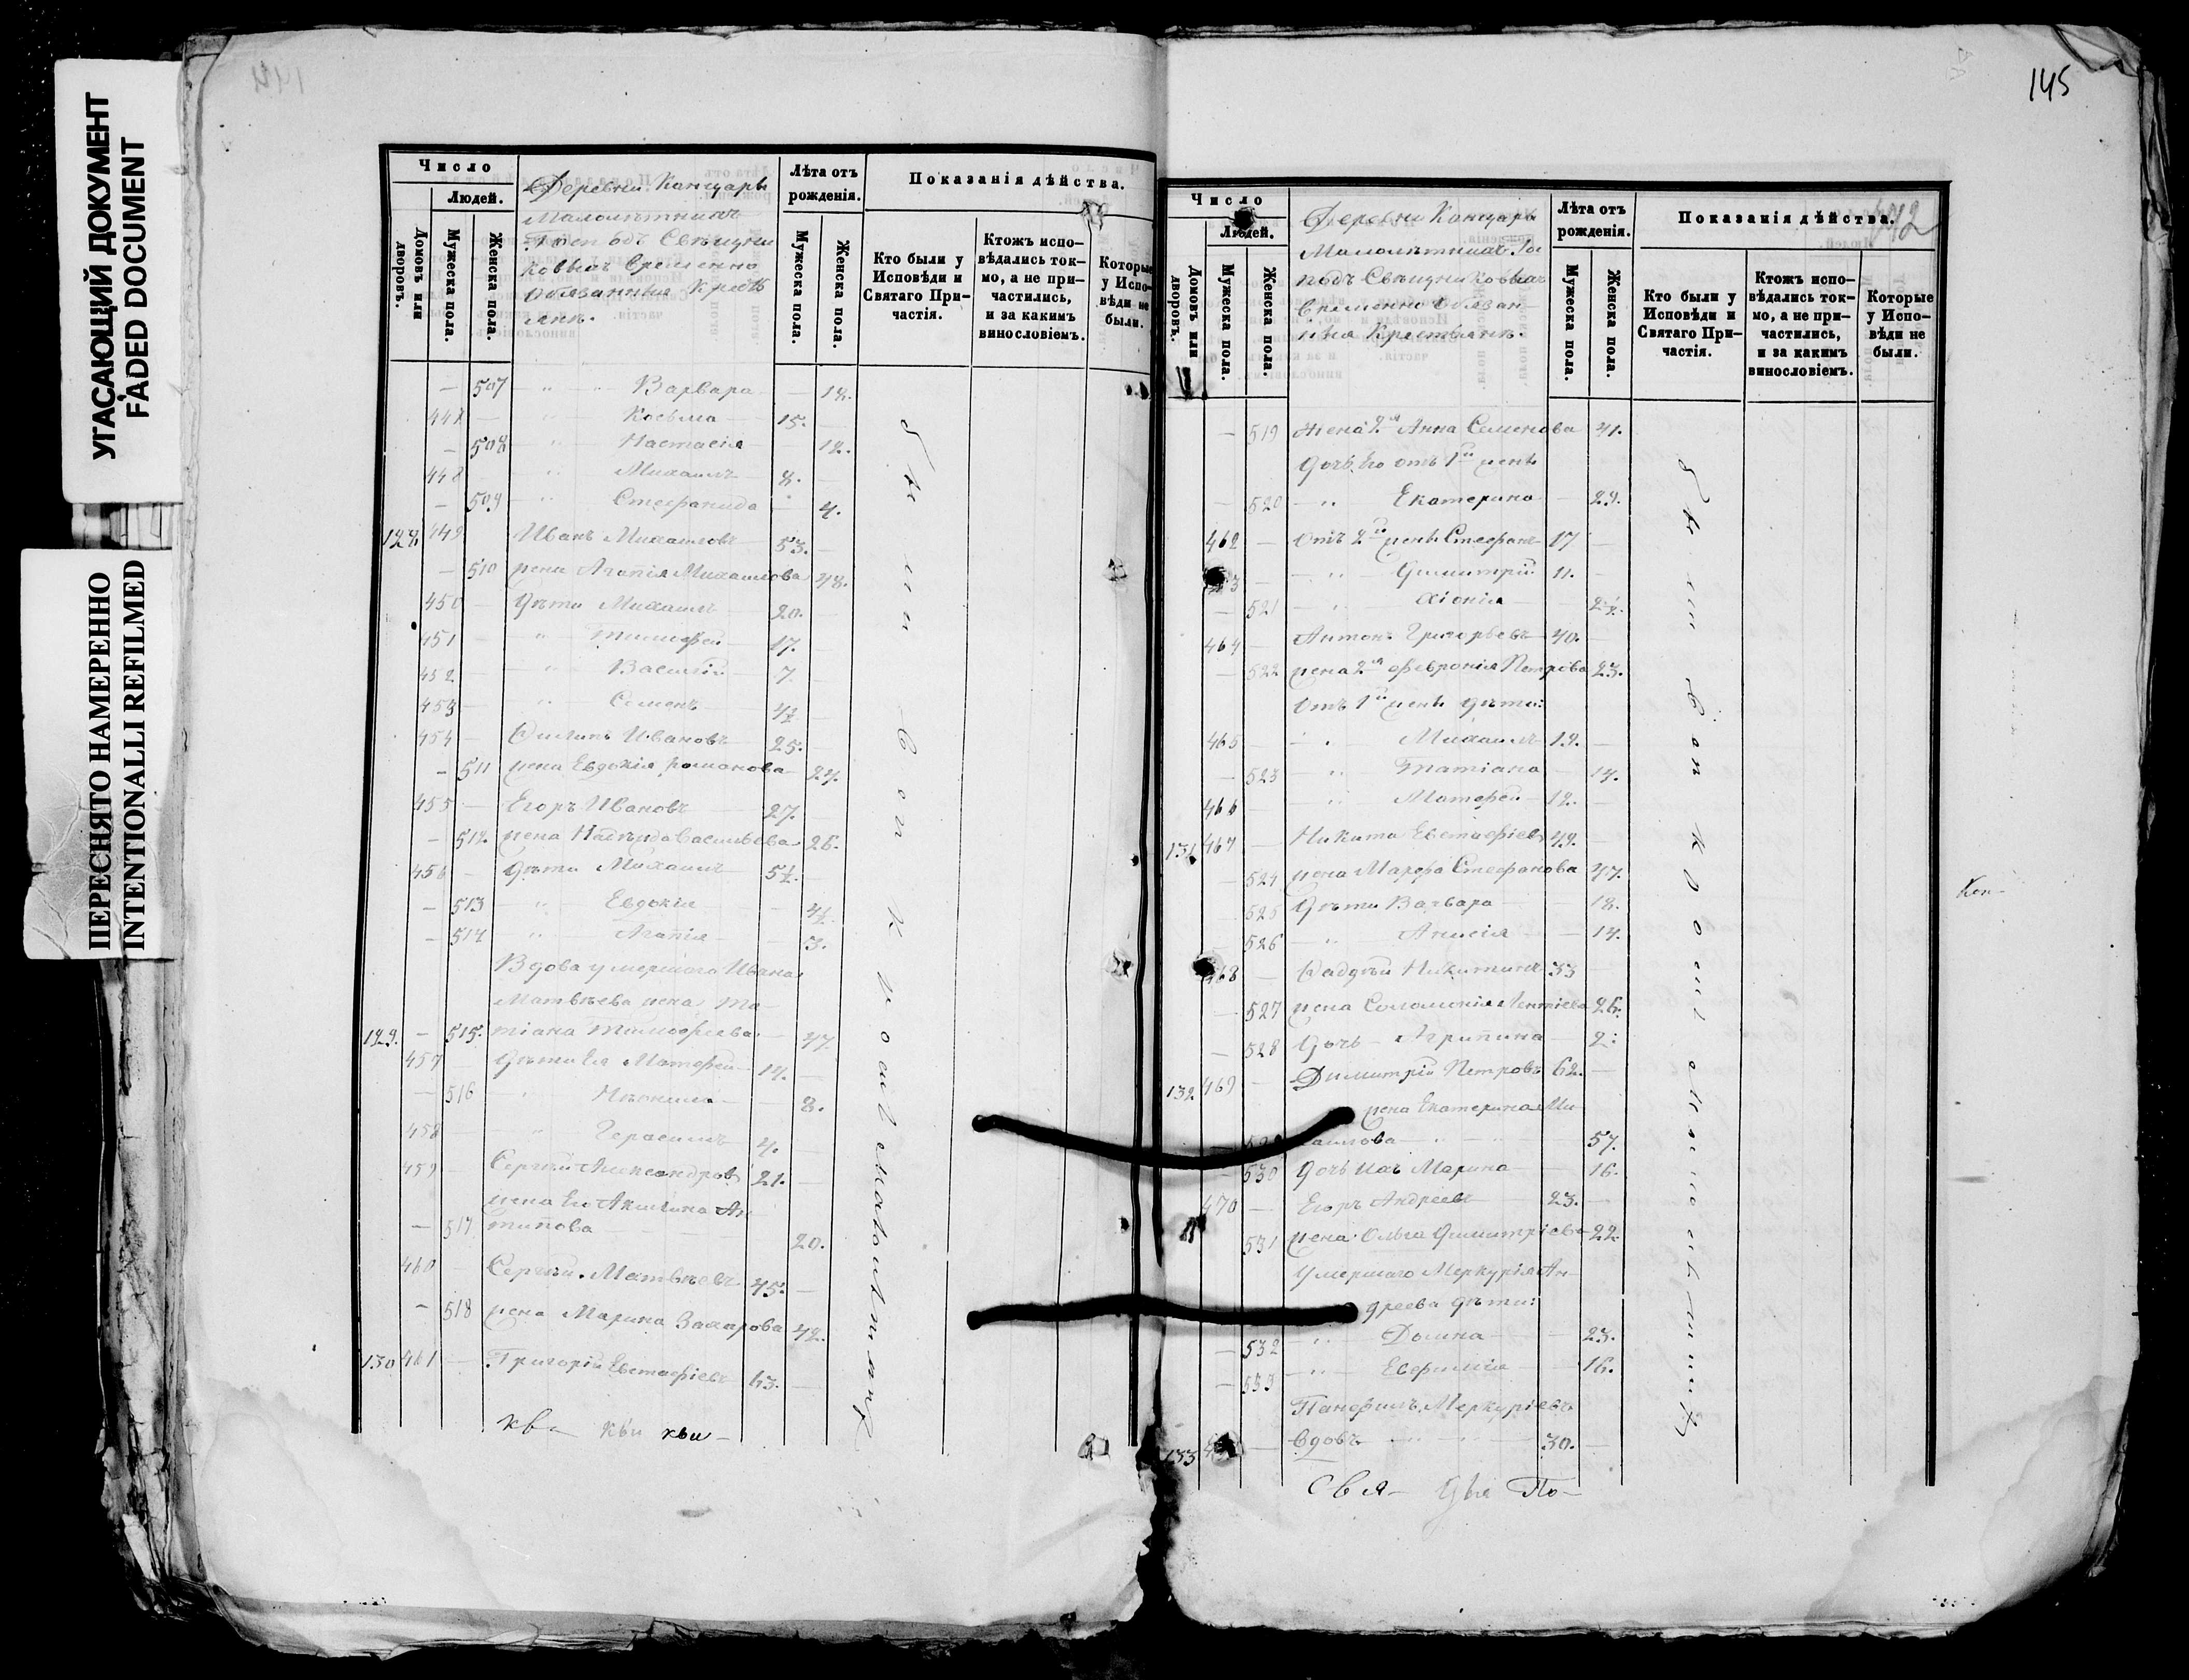 УГАСАЮЩИЙ ДОКУМЕНТ
FADED DOCUMENT
ПЕРЕСНЯТО НАМЕРЕННО
INTENTIONALLI REFILMED
144
Число
Людей.
Домовъ или дворовъ.
Мужеска пола.
Женска пола.
Деревни Канцарь
Малолѣтныхъ
Господъ Свѣщни
ковыхъ Временно
обязанныя Кресть
яне.
Лѣта отъ рожденія.
Мужеска пола.
Женска пола.
Показанія дѣйства.
Кто были у Исповѣди и Святаго Причастія.
Ктожъ исповѣдались токмо, а не причастились, и за какимъ винословіемъ.
Которые у Исповѣди не были.
— 507 " Варвара — 18.
447 — " Косьма 15. —
— 508 " Настасія — 12.
448 — " Михаилъ 8. —
— 509 " Стефанида — 4.
128. 449 Иванъ Михаиловъ 53. —
— 510 жена Агапія Михаилова 48.
450 — Дѣти Михаилъ 20. —
451 — " Тимофей 17. —
452 — " Василій 7. —
453 — " Семенъ 4½ —
454 — Филипъ Ивановъ 25. —
— 511 жена Евдокія Романова 24.
455 — Егоръ Ивановъ 27. —
— 512. жена Надежда Васильева 26.
456 — Дѣти Михаилъ 5½. —
— 513 " Евдокія — 4½.
— 514 " Агапія — 3.
Вдова умершаго Ивана
Матвѣева жена Та-
129. — 515. тіана Тимофеева — 47
457 — Дѣти Ея Матфей 14. —
— 516 " Неонила — 8.
458 — " Герасимъ 4. —
459 — Сергѣй Александровъ 21. —
жена Его Акилина Ан-
— 517 типова — 20.
460 — Сергѣй Матвѣевъ 45. —
— 518 жена Марина Захарова 42.
130 461 — Григорій Евстафіевъ 63. —
145
Число
Людей.
Домовъ или дворовъ.
Мужеска пола.
Женска пола.
Деревни Канцарь
Малолѣтныхъ Го-
сподъ Свѣщниковыхъ
Временно Обязан-
ныя Крестьяне.
Лѣта отъ рожденія.
Мужеска пола.
Женска пола.
Показанія дѣйства.
Кто были у Исповѣди и Святаго Причастія.
Ктожъ исповѣдались токмо, а не причастились, и за какимъ винословіемъ.
Которые у Исповѣди не были.
— 519 жена 2я Анна Семенова 41.
дочь Его отъ 1й жены
— 520 " Екатерина — 29.
462 — Отъ 2й жены Стефанъ 17 —
" Димитрій 11. —
— 521 " Хіонія — 2½.
464 Антонъ Григорьевъ 40. —
— 522 жена 2я Февронія Петрова 23.
Отъ 1й жены дѣти:
465 — " Михаилъ 19. —
— 523 " Татіана — 14.
466 — " Матфей 12. —
131 467 — Никита Евстафіевъ 49. —
— 524 жена Марфа Стефанова 47.
525 Дѣти Варвара — 18.
526 " Анисія — 14.
468 — Фаддѣй Никитинъ 33
— 527 жена Соломонія Леонтіева 26.
— 528 Дочь Агрипина — 2.
132 469 — Димитрій Петровъ 62. —
жена Екатерина Ми-
хаилова — 57.
530 Дочь ихъ Марина — 16.
470 — Егоръ Андреевъ 23. —
531 жена Ольга Димитріева 22.
Умершаго Меркурія Ан-
дреева дѣти:
— 532 " Домна — 23.
— 533 " Евфимія — 16.
Панфилъ Меркуріевъ
133 — вдовъ 30. —
свя- По-